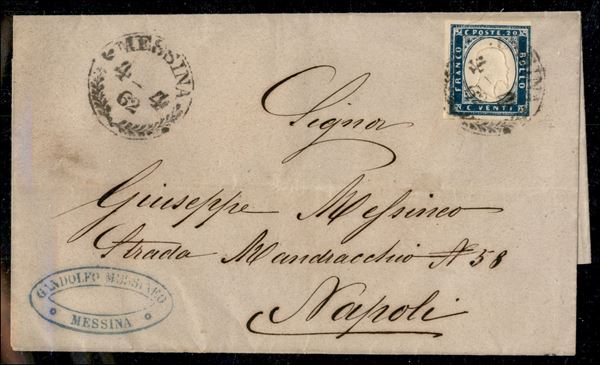 MESSINA
4 - 4
62
C. POSTE. 20
FRANCO
BOLLO
C. VENTI
Signor
Giuseppe Messineo
Strada Mandracchio N 58
Napoli
GANDOLFO MESSINEO
MESSINA